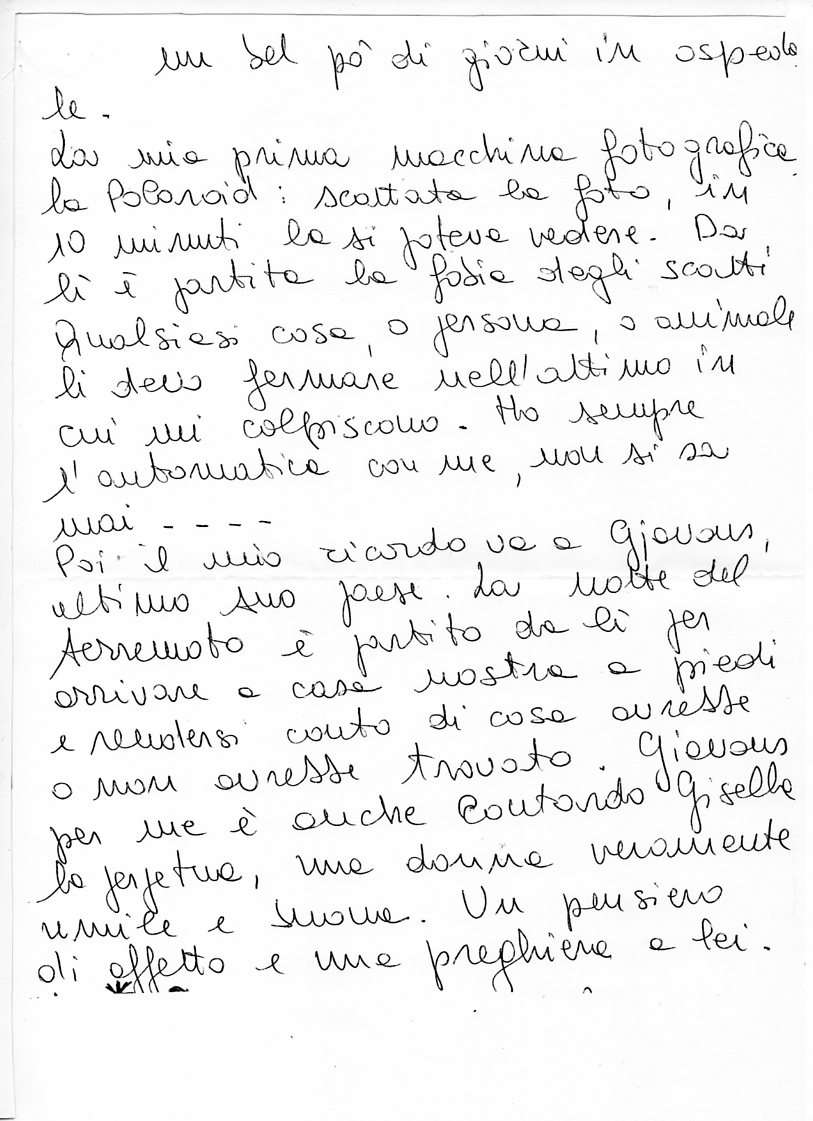 un bel pò di giorni in ospeda
le.
La mia prima macchina fotografica
la Polaroid: scattata la foto, in
10 minuti la si poteva vedere. Da
lì è partita la fobia degli scatti
Qualsiasi cosa, o persona, o animale
li devo fermare nell'attimo in
cui mi colpiscono. Ho sempre
l'automatica con me, non si sa
mai ----
Poi il mio ricordo va a Gjavons,
ultimo suo paese. La notte del
terremoto è partito da lì per
arrivare a casa nostra a piedi
e rendersi conto di cosa avesse
o non avesse trovato. Giavons
per me è anche Contardo Gisella
la perpetua, una donna veramente
umile e buona. Un pensiero
di affetto e una preghiera a lei.